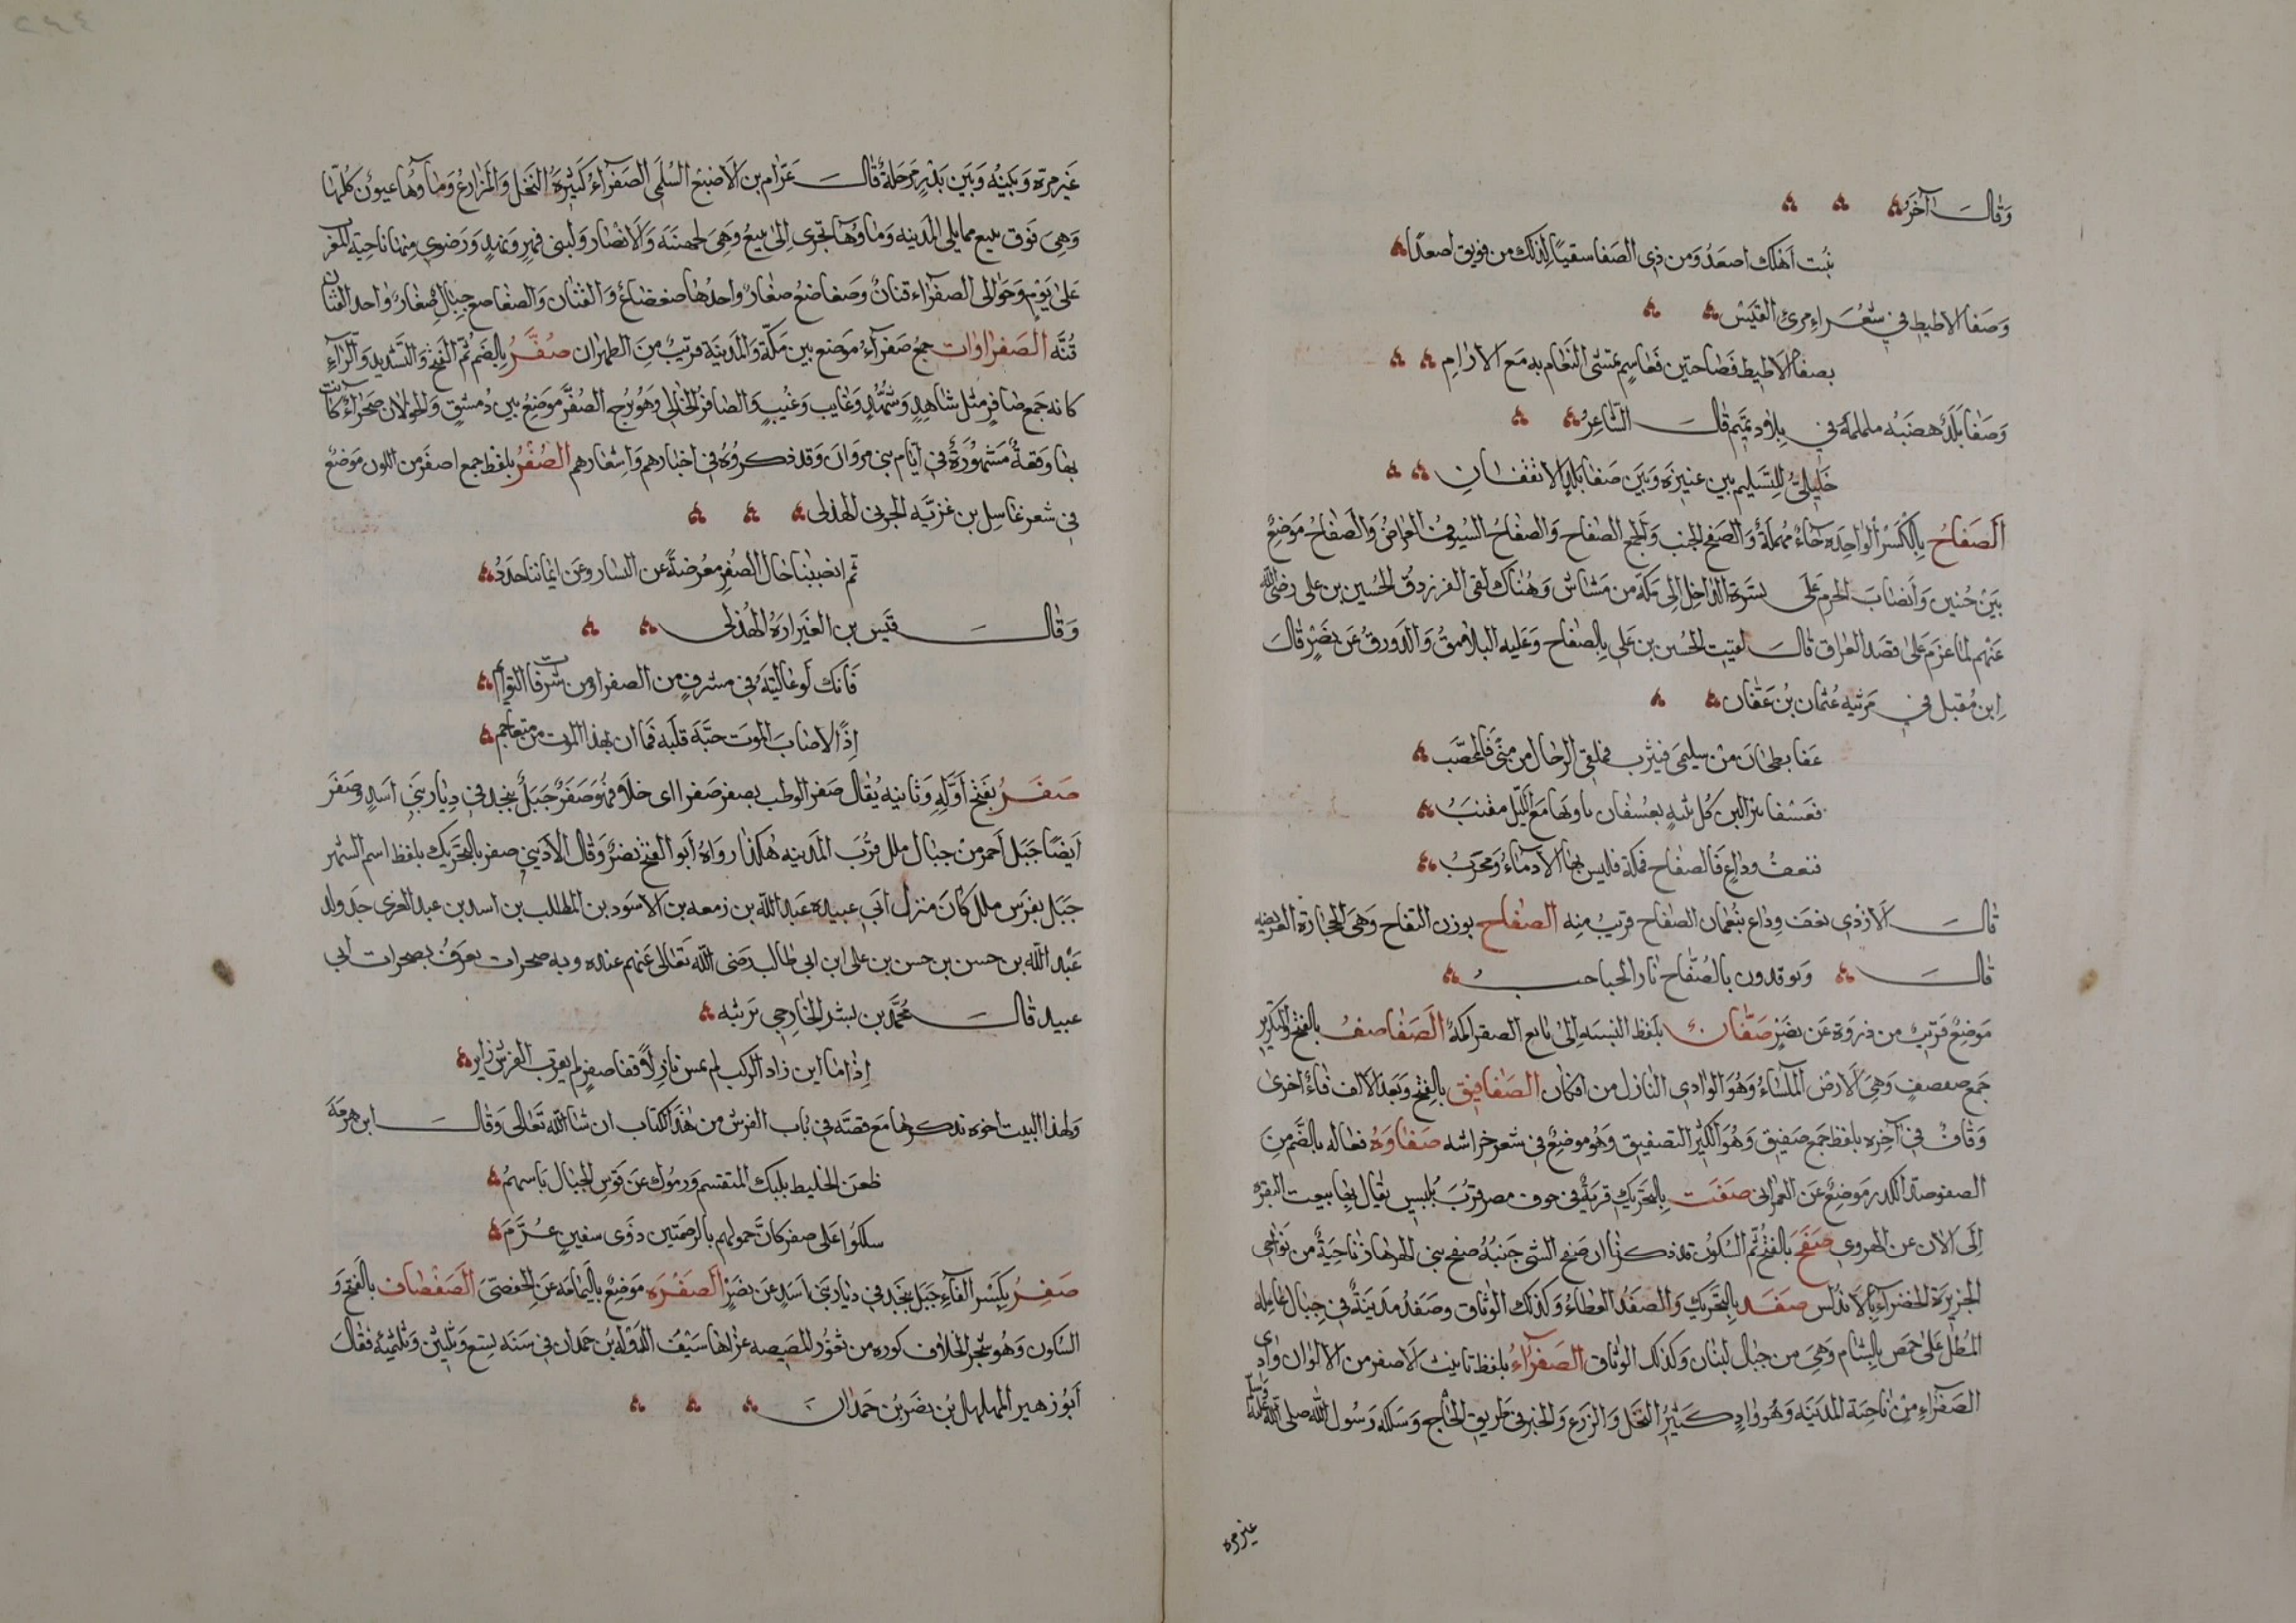 وقال آخر
نبت اهلك اصعد ومن ذي الصفا سقيا لذلك من فريق اصعدا
وصفا الاطيط في شعر امرئ القيس
بصفا الاطيط فصاحتين فغاسم تمشى النعام به مع الارام
وصفا بلد هضبه ململمة في بلاد تميم قال الشاعر
خليلي للتسليم بين عنيزة وبين صفا بلد الا تقفان
الصفاح بالكسر الواحده حاء مهملة والصفح الجنب والجمع الصفاح والصفاح السيوف العراض والصفاح موضع
بين حنين وأنصاب الحرم على يسرة الداخل الى مكة من مشاش وهناك لقي الفرزدق الحسين بن علي رضي الله
عنهم لما عزم على قصد العراق قال لقيت الحسين بن علي بالصفاح وعليه اليلامق والدورق عن نصر قال
ابن مقبل في مرثيه عثمان بن عفان
عفا بطحان من سليمى فيثرب فملقى الرحال من منى فالمحصب
فعسفان كل ثنية بعسفان ياويها مع الليل مقنب
فنعف وداع فالصفاح فمكة فليس بها الا دماء ومحرب
قال الازدي نعف وداع بنعمان الصفاح قريب منه الصفاح بوزن التفاح وهي الحجارة العريضه
قال وتوقدون بالصفاح نار الحباحب
موضع قريب من ذروة عن نصر صفان بلفظ النسبه الى الصفاصف بالفتح والتكرير
جمع صفصف وهي الارض الملساء وهو الوادي النازل من افكان الصفافيق بالفتح وبعد الالف فاء اخرى
وقاف في آخره بلفظ جمع صفيق وهو الكثير التصفيق وهو موضع في شعر خراشه صفاوه فعاله بالضم من
الصفو ضد الكدر موضع عن العمراني صفت بالتحريك قرية في حوف مصر قرب بلبيس يقال بها بيعت البقره
الى الان عن الهروي صفح بالفتح ثم السكون قد ذكرنا ان صفح الشي جنبه صفح بني الهزهاز ناحية من نواحي
الجزيرة الخضراء بالاندلس صفد بالتحريك والصفد العطاء وكذلك الوثاق وصفد مدينة في جبال عامله
المطل على حمص بالشام وهي من جبال لبنان وكذلك الوثاق الصفراء بلفظ تانيث الاصفر من الالوان وادي
الصفراء من ناحية المدينه وهو واد كثير النخل والزرع والخير في طريق الحاج وسلكه رسول الله صلى الله عليه وسلم
غير مره
غير مره وبينه وبين بدر مرحلة قال عرام بن الاصبغ السلمي الصفراء كثيرة النخل والمزارع وماوها عيون كلها
وهي فوق ينبع مما يلي المدينه وماوها تجرى الى ينبع وهي لجهينة والانصار ولبني فهر ونهد ورضوى منها ناحية المغرب
على يوم وحوالى الصفراء قنان وضعاضع صغار واحدها ضعضاع والقنان والضعاضع جبال صغار واحد القنان
قنه الصفراوات جمع صفراء موضع بين مكة والمدينة قريب من الظهران صفر بالضم ثم الفتح والتشديد والراء
كانه جمع صافر مثل شاهد وشهد وغايب وغيب والصافر الخالى وهو مرج الصفر موضع بين دمشق والجولان صحراء كانت
بها وقعة مشهورة في ايام بني مروان وقد ذكروه في اخبارهم واشعارهم الصفر بلفظ جمع اصفر من اللون موضع
في شعر غاسل بن غزيه الجربي الهذلى
ثم انصببنا جبال الصفر معرضة عن اليسار وعن ايماننا جدد
وقال قيس بن العيزاره الهذلى
فانك لو عاليته في مشرف من الصفرا ومن مشرفات التوايم
اذا لاصاب الموت حبة قلبه فما ان بهذا الموت من متعاجم
صفر بفتح اوله وثانيه يقال صفر الوطب يصفر صفرا اى خلا فهو صفر جبل بنجد في ديار بني اسد وصفر
ايضا جبل احمر من جبال ملل قرب المدينه هكذا رواه ابو الفتح نصر وقال الاديبي صفر بالتحريك بلفظ اسم الشهر
جبل بفرس ملل كان منزل ابي عبيده عبد الله بن زمعه بن الاسود بن المطلب بن اسد بن عبد العزى جد ولد
عبد الله بن حسن بن حسن بن على ابن ابي طالب رضى الله تعالى عنهم عنده وبه صخرات تعرف بصخرات ابي
عبيد قال محمد بن بشر الخارجي يرثيه
اذا ما ابن زاد الركب لم يمس نازلا قفا صفر لم يقرب الفرش زاير
ولهذا البيت اخوه نذكرها مع قصته في باب الفرش من هذا الكتاب ان شا الله تعالى وقال ابن هرمة
ظعن الخليط بلبك المتقسم ورموك عن قوس الجبال باسهم
سلكوا على صفر كان حمولهم بالرضمتين ذوى سفين عوم
صفر بكسر الفاء جبل بنجد في ديار بني اسد عن نصر الصفره موضع باليمامه عن الحفصى الصفصاف بالفتح و
السكون وهو شجر الخلاف كوره من ثغور المصيصه غزاها سيف الدوله بن حمدان في سنه تسع وثلثين وثلثمئه فقال
ابو زهير المهلهل بن نصر بن حمدان